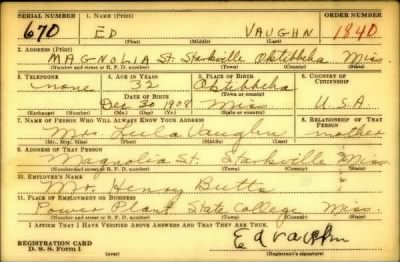 SERIAL NUMBER 1. NAME (Print) ORDER NUMBER
670 ED VAUGHN 1840
(First) (Middle) (Last)
2. ADDRESS (Print)
MAGNOLIA St. Starkville Oktibbeha Miss.
(Number and street or R. F. D. number) (Town) (County) (State)
3. TELEPHONE 4. AGE IN YEARS 5. PLACE OF BIRTH 6. COUNTRY OF CITIZENSHIP
none 32 Oktibbeha
DATE OF BIRTH (Town or county)
Dec 30 1908 Miss U.S.A
(Exchange) (Number) (Mo.) (Day) (Yr.) (State or country)
7. NAME OF PERSON WHO WILL ALWAYS KNOW YOUR ADDRESS 8. RELATIONSHIP OF THAT PERSON
Mrs. Vaughn mother
(Mr., Mrs., Miss) (First) (Middle) (Last)
9. ADDRESS OF THAT PERSON
Magnolia St. Starkville Miss.
(Number and street or R. F. D. number) (Town) (County) (State)
10. EMPLOYER'S NAME
Mr. Henry Butts
11. PLACE OF EMPLOYMENT OR BUSINESS
Power Plant State College Miss.
(Number and street or R. F. D. number) (Town) (County) (State)
I AFFIRM THAT I HAVE VERIFIED ABOVE ANSWERS AND THAT THEY ARE TRUE.
REGISTRATION CARD Ed Vaughn
D. S. S. Form 1 (Registrant's signature)